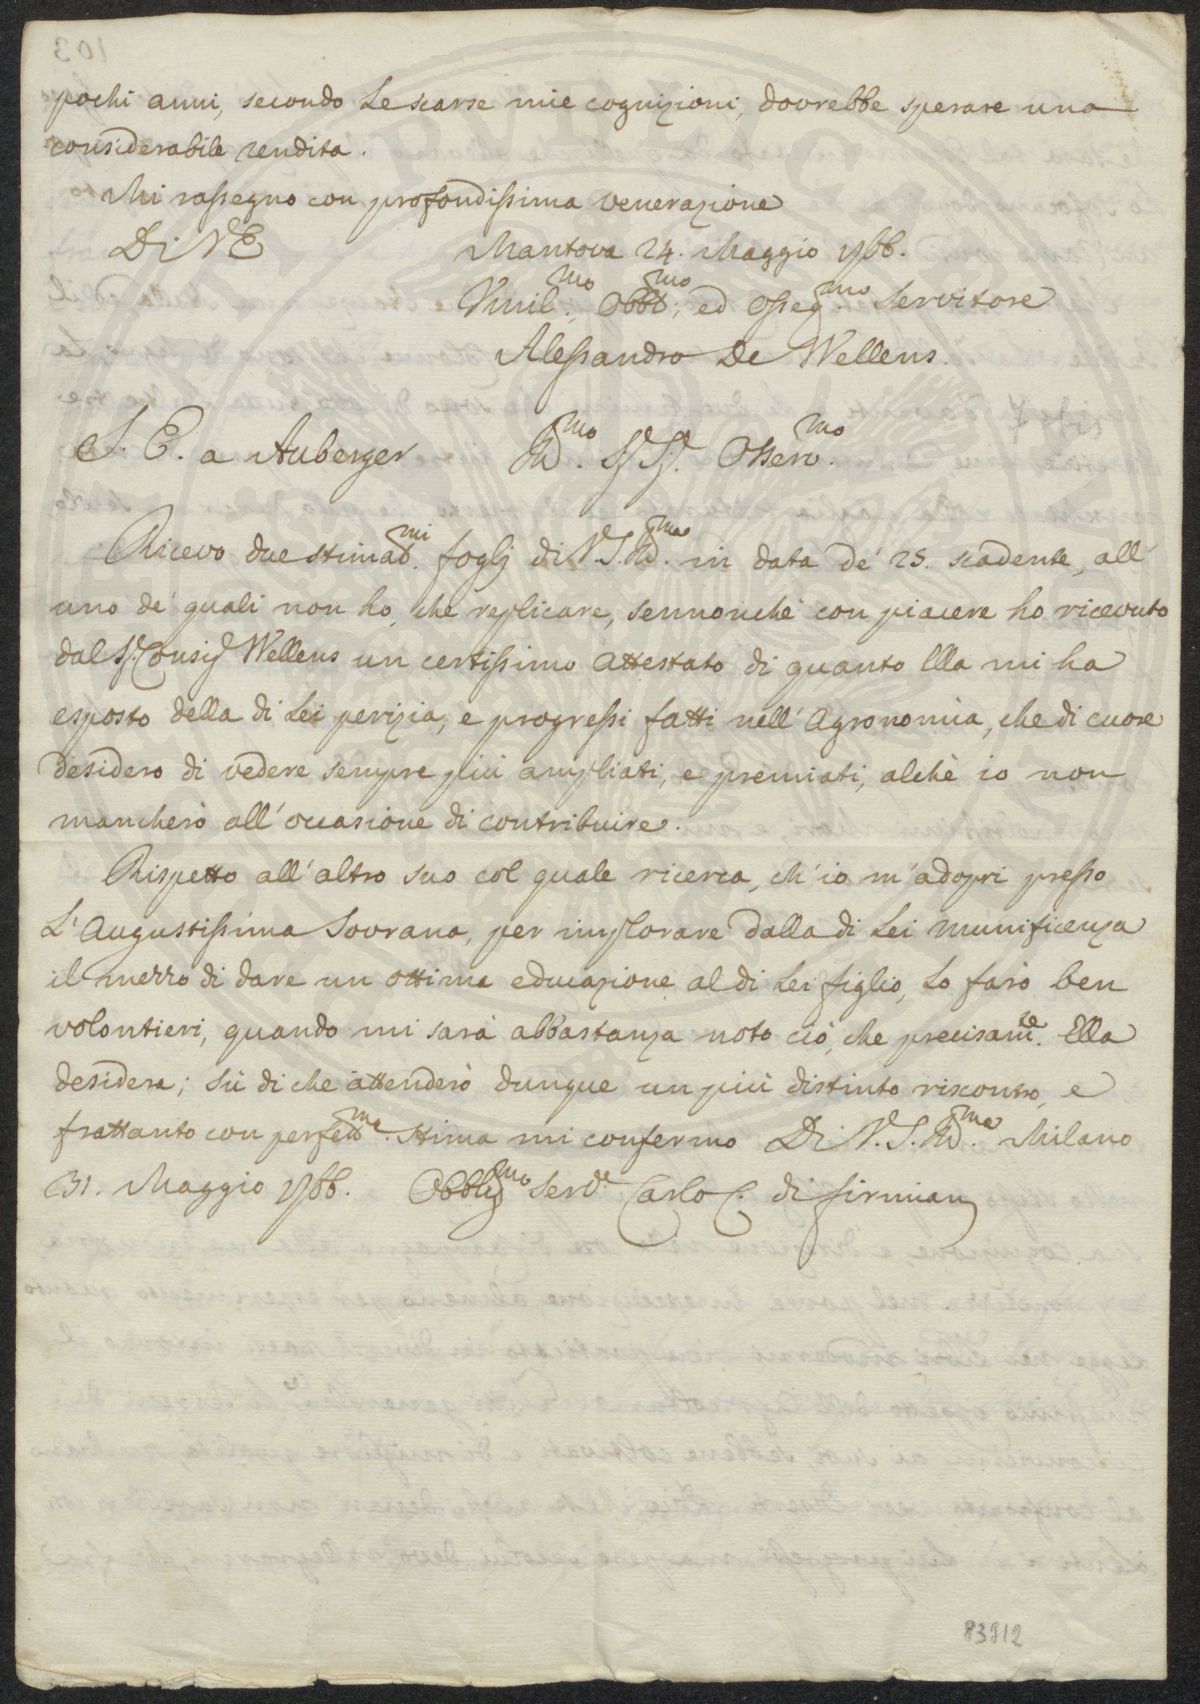 pochi anni, secondo le scarse mie cognizioni, dovrebbe sperare una
considerabile rendita.
Mi rassegno con profondissima venerazione
Di V E
Mantova 24. Maggio 1766.
Umil.mo, Obbd.mo, ed Osseq.mo Servitore
Alessandro De Wellens.
S. E. a Auberger
Ill.mo Sig.r Sig.r Osserv.mo
Ricevo due stimat.mi foglj di V.S. Ill.ma in data de' 25. scadente, all'
uno de' quali non ho, che replicare, sennonchè con piacere ho ricevuto
dal Sig.r Consig.r Wellens un certissimo attestato di quanto Ella mi ha
esposto della di Lei perizia, e progressi fatti nell' Agronomia, che di cuore
desidero di vedere sempre più ampliati, e premiati, alchè io non
mancherò all' occasione di contribuire.
Rispetto all' altro suo col quale ricerca, ch' io m' adopri presso
L' Augustissima Sovrana, per implorare dalla di Lei munificenza
il mezzo di dare un ottima educazione al di Lei figlio, lo farò ben
volontieri, quando mi sarà abbastanza noto ciò, che precisam.te Ella
desidera; sù di che attenderò dunque un più distinto riscontro, e
frattanto con perfett.ma stima mi confermo Di V. S. Ill.ma Milano
31. Maggio 1766. Obblig.mo Serd.e Carlo C. di Firmian
83912